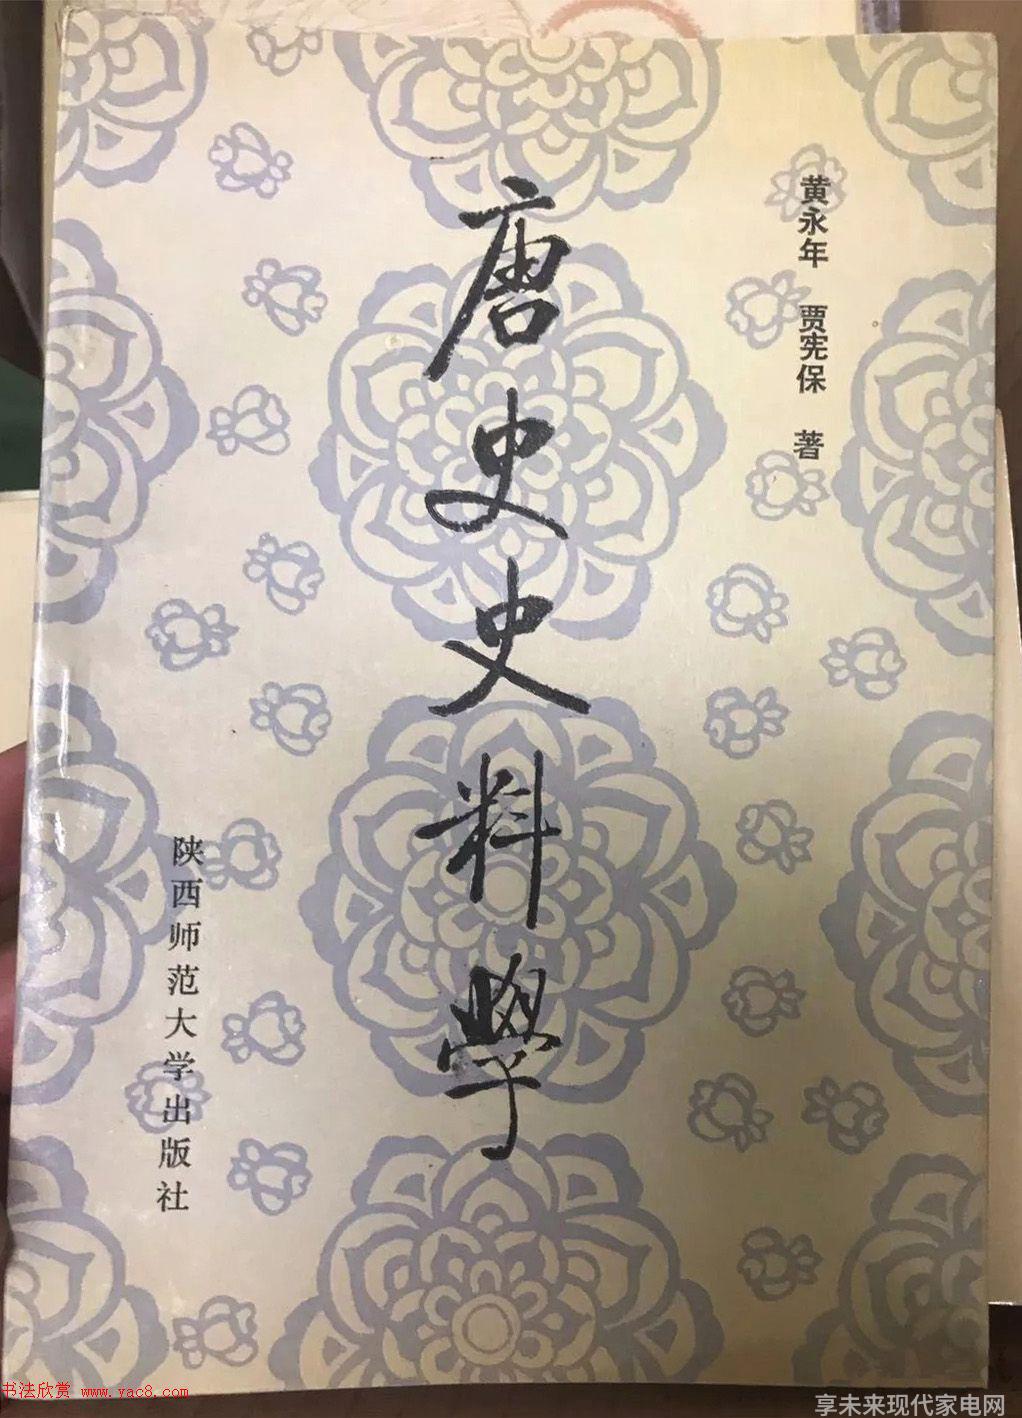 黄永年 贾宪保 著
唐史史料學
陕西师范大学出版社
书法欣赏 www.yac8.com
享未来现代家电网